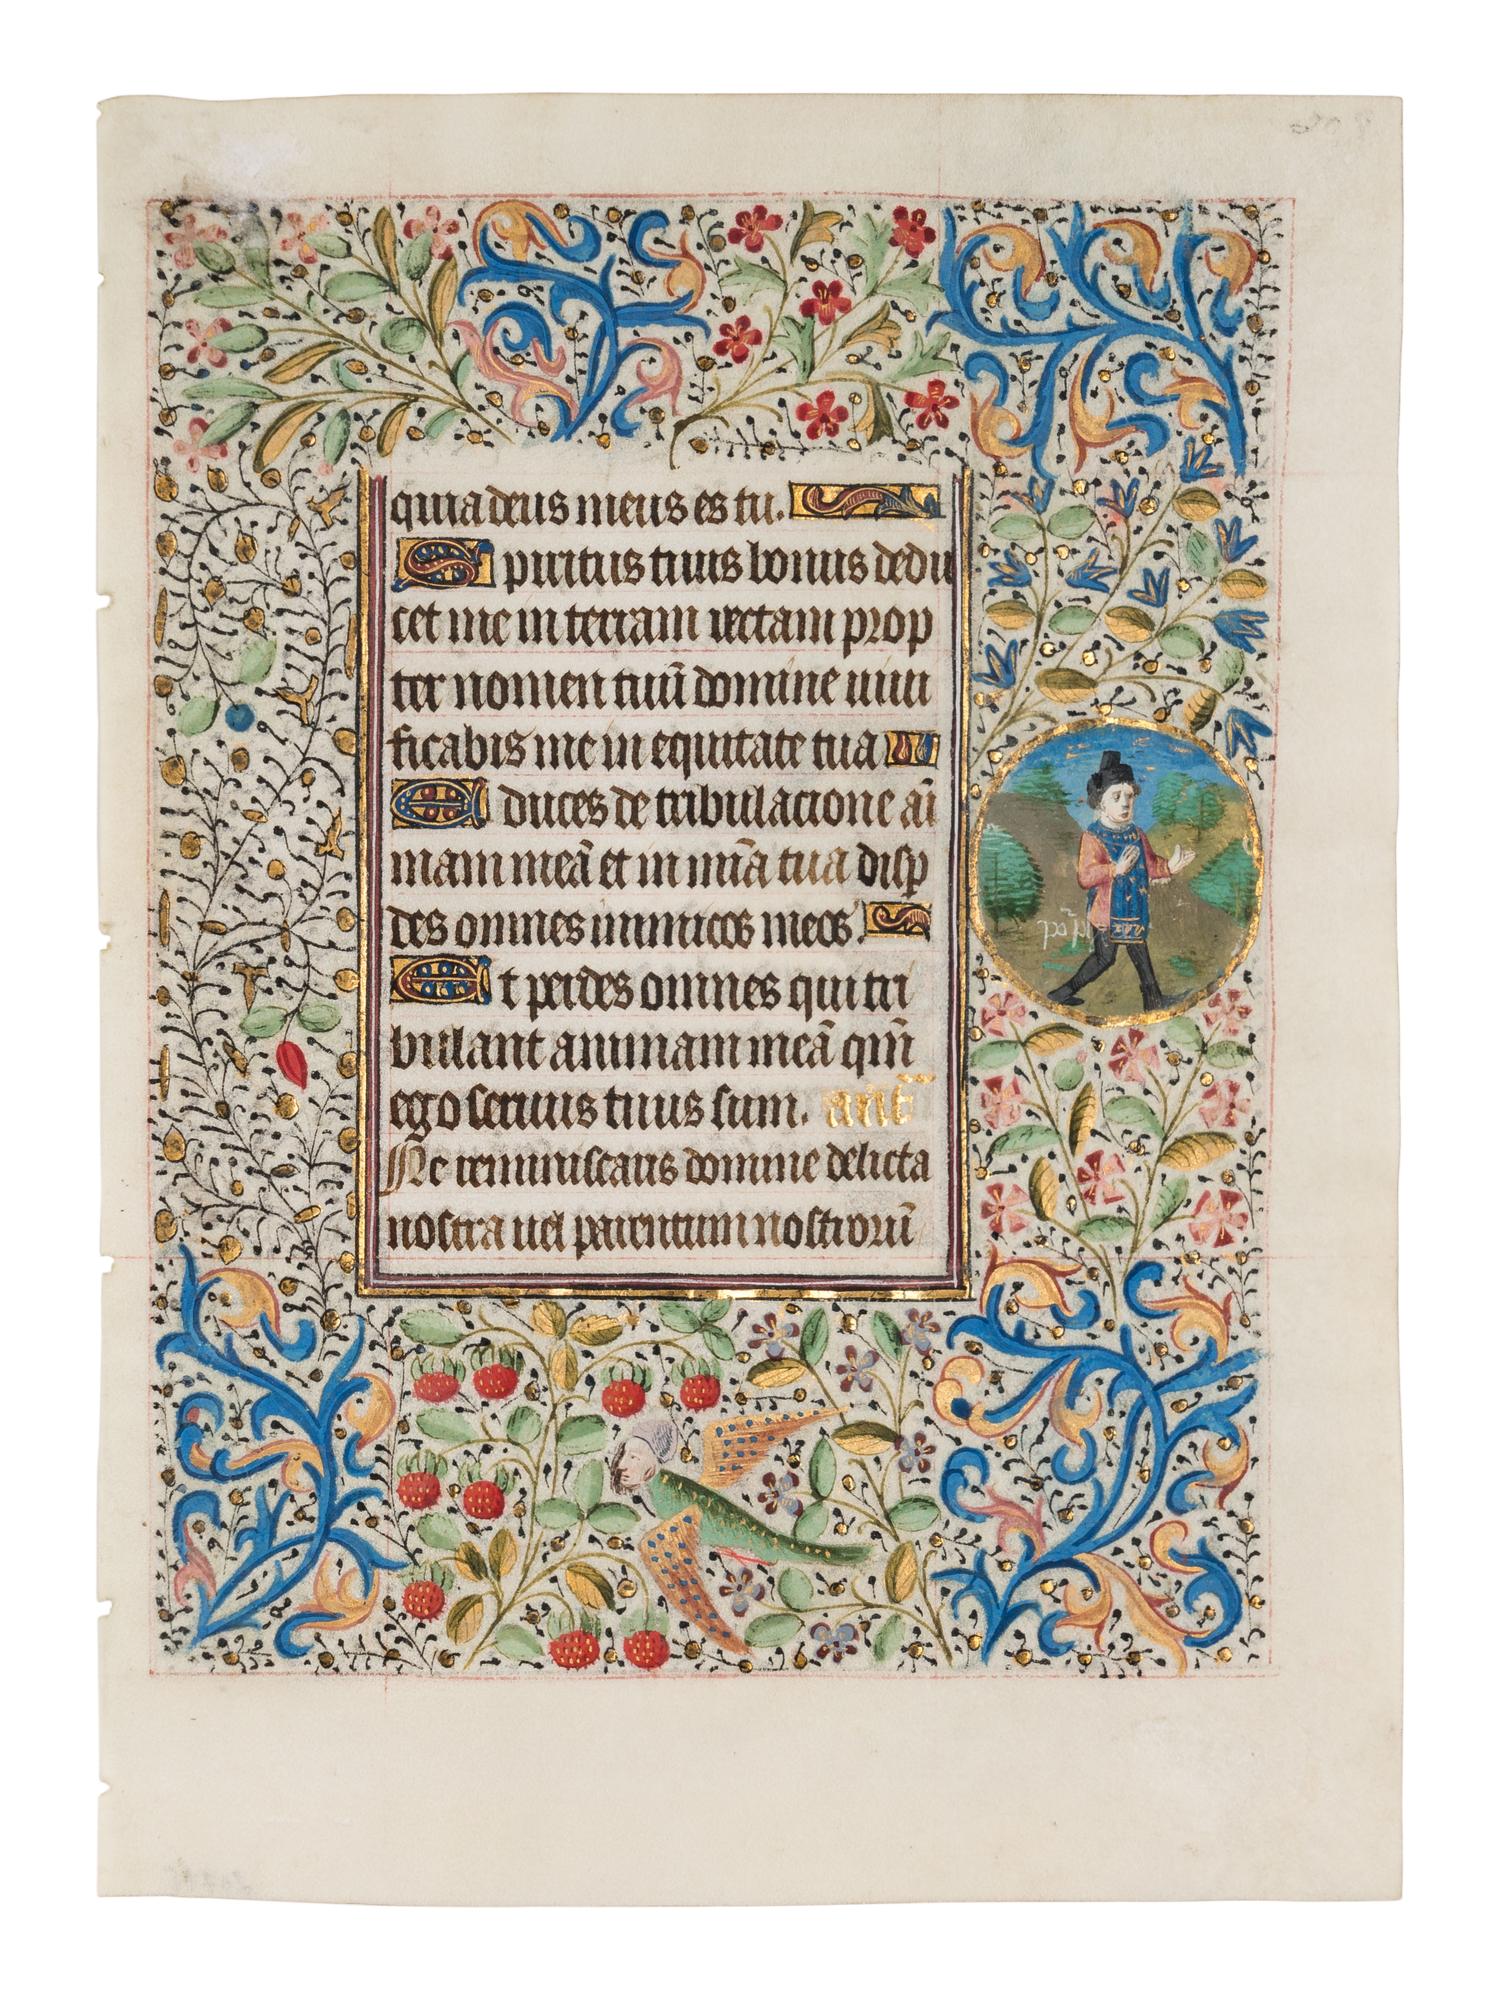 quia deus meus es tu.
Spiritus tuus bonus dedu
cet me in terram rectam prop
ter nomen tuū domine uiui
ficabis me in equitate tua
Educes de tribulacione ani
mam meā et in mīa tua disp
des omnes inimicos meos.
Et perdes omnes qui tri
bulant animam meā qm̄
ego seruus tuus sum. ant̄
Ne reminiscaris domine delicta
nostra uel parentum nostrorū